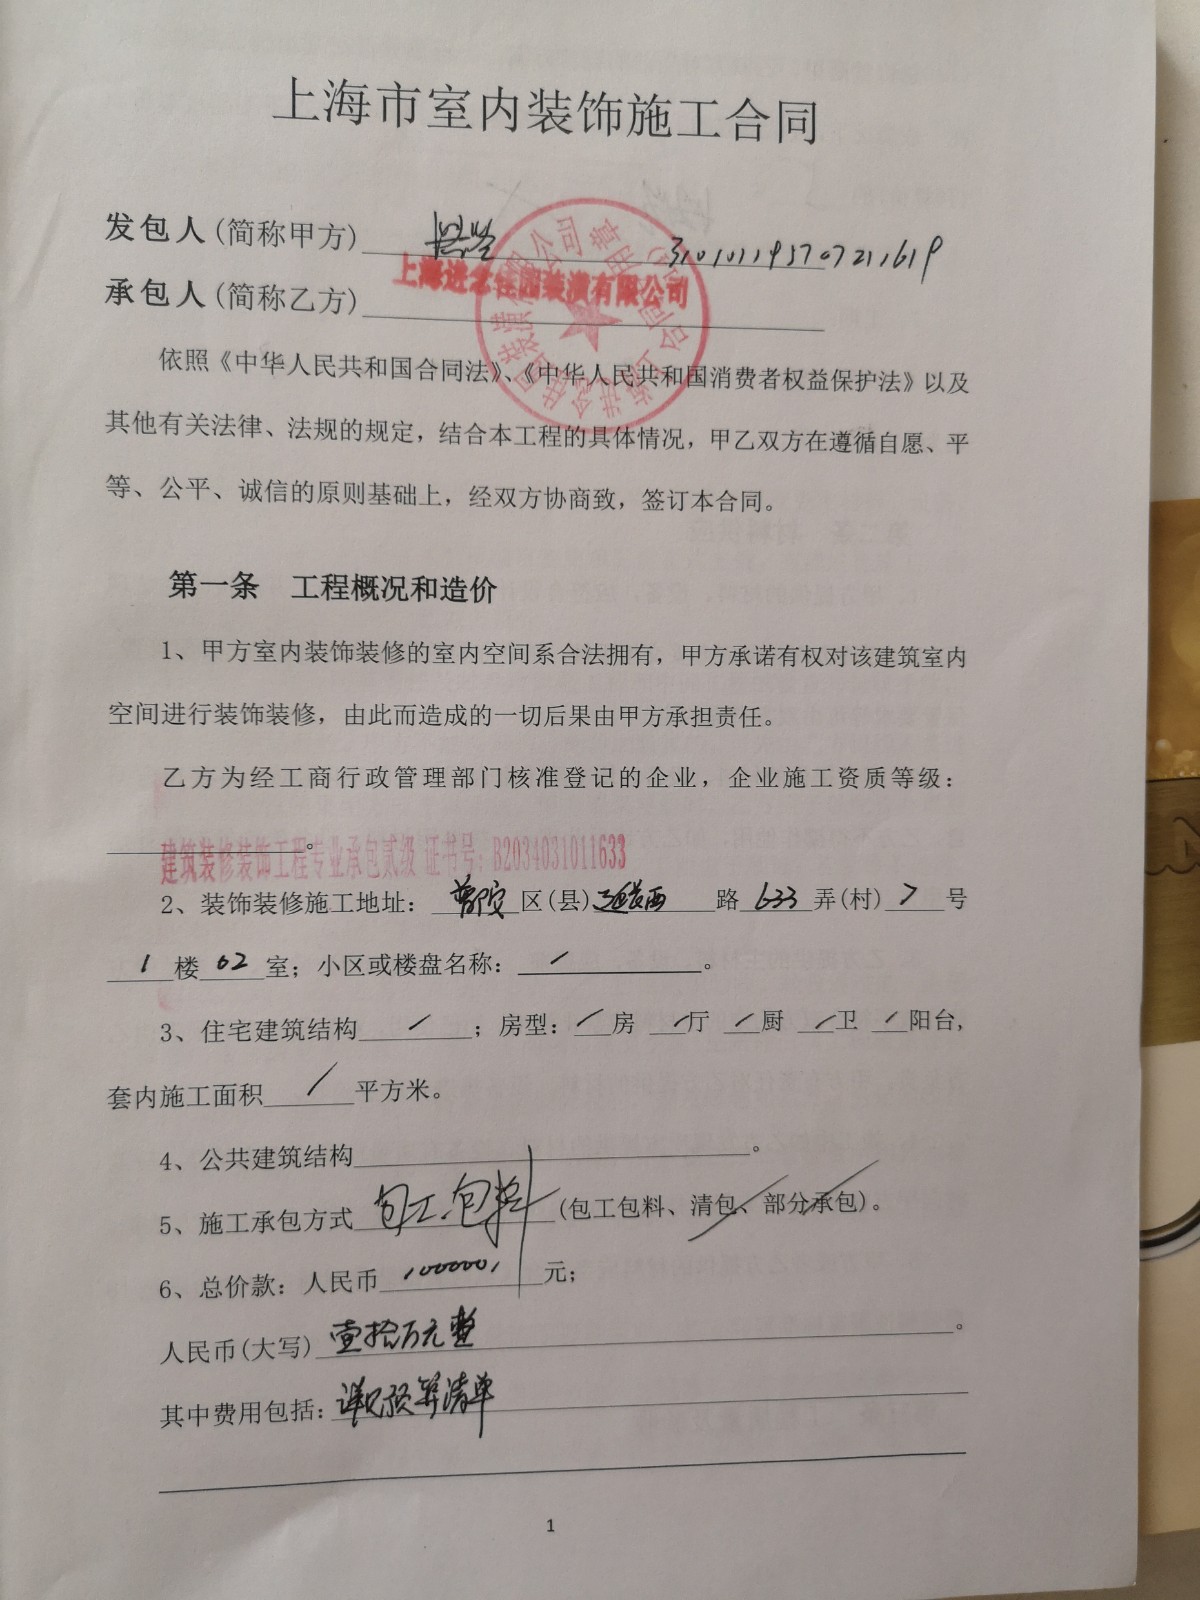 上海市室内装饰施工合同
发包人(简称甲方) 310101195707211619
承包人(简称乙方) 上海进念佳园装潢有限公司
依照《中华人民共和国合同法》、《中华人民共和国消费者权益保护法》以及
其他有关法律、法规的规定，结合本工程的具体情况，甲乙双方在遵循自愿、平
等、公平、诚信的原则基础上，经双方协商致，签订本合同。
第一条 工程概况和造价
1、甲方室内装饰装修的室内空间系合法拥有，甲方承诺有权对该建筑室内
空间进行装饰装修，由此而造成的一切后果由甲方承担责任。
乙方为经工商行政管理部门核准登记的企业，企业施工资质等级：
建筑装修装饰工程专业承包贰级 证书号：B2034031011633。
2、装饰装修施工地址：普陀区(县)延长西路 633 弄(村) 7 号
1 楼 02 室；小区或楼盘名称： / 。
3、住宅建筑结构 / ；房型： / 房 / 厅 / 厨 / 卫 / 阳台,
套内施工面积 / 平方米。
4、公共建筑结构 。
5、施工承包方式 包工.包料 (包工包料、清包、部分承包)。
6、总价款：人民币 100000, 元；
人民币(大写) 壹拾万元整 。
其中费用包括：详见预算清单
1